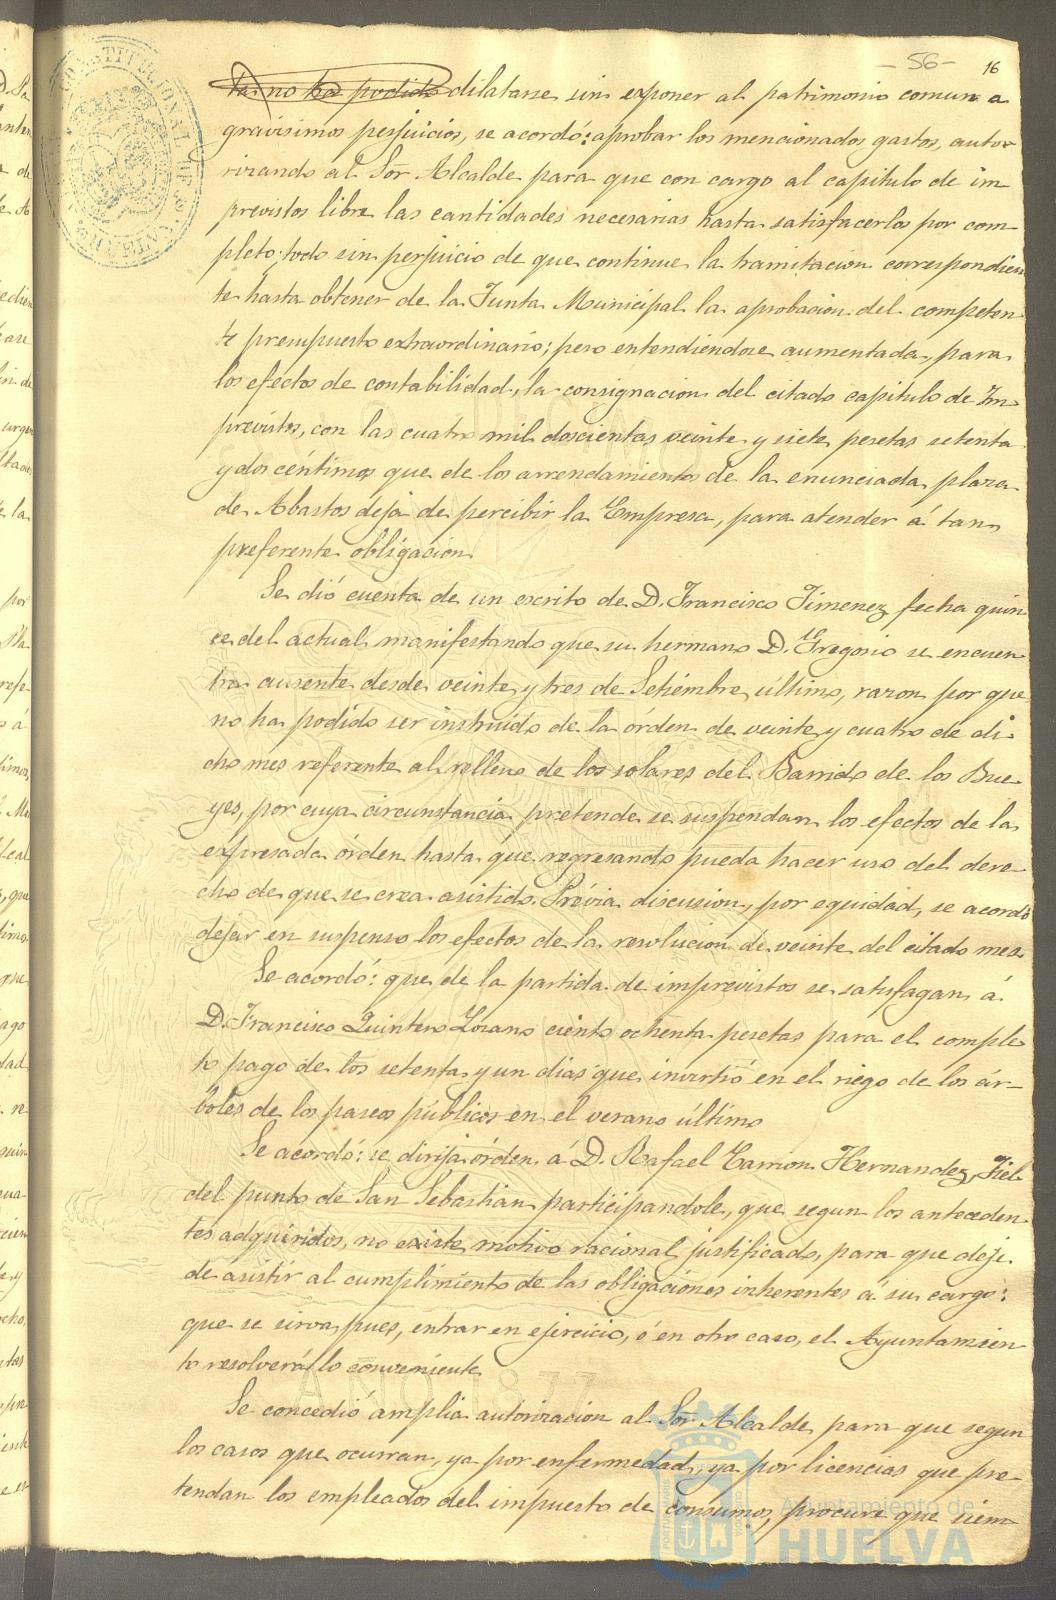 -56- 16
ta no ha podido dilatarse sin exponer al patrimonio comun a
gravisimos perjuicios, se acordó: aprobar los mencionados gastos, auto-
rizando al Sor Alcalde para que con cargo al capitulo de im
previstos libre las cantidades necesarias hasta satisfacerlos por com-
pleto; todo sin perjuicio de que continue la tramitacion correspondien
te hasta obtener de la Junta Municipal la aprobacion del competen
te presupuesto extraordinario; pero entendiendose aumentada, para
los efectos de contabilidad, la consignacion del citado capitulo de Im-
previstos, con las cuatro mil doscientas veinte y siete pesetas setenta
y dos céntimos que de los arrendamientos de la enunciada plaza
de Abastos deja de percibir la Empresa, para atender á tan
preferente obligacion
Se dió cuenta de un escrito de D. Francisco Jimenez fecha quin
ce del actual manifestando que su hermano D. Gregorio se encuen
tra ausente desde veinte y tres de Setiembre último, razon por que
no ha podido ser instruido de la órden de veinte y cuatro de di
cho mes referente al relleno de los solares del Barrido de los Bue
yes, por cuya circunstancia pretende se suspendan los efectos de la
expresada órden hasta que regresando pueda hacer uso del dere-
cho de que se crea asistido. Prévia discusion, por equidad, se acordó
dejar en suspenso los efectos de la resolucion de veinte del citado mes
Se acordó: que de la partida de imprevistos se satisfagan á
D. Francisco Quintero Lozano ciento ochenta pesetas para el comple
to pago de los setenta y un dias que invirtió en el riego de los ár-
boles de los paseos públicos en el verano último
Se acordó: se dirija órden á D. Rafael Carrion Hernandez, Fiel
del punto de San Sebastian participandole, que segun los anteceden
tes adquiridos, no existe motivo racional justificado, para que deje
de asistir al cumplimiento de las obligaciones inherentes á su cargo:
que se sirva, pues, entrar en ejercicio, ó en otro caso, el Ayuntamien
to resolverá lo conveniente
Se concedió amplia autorizacion al Sor Alcalde, para que segun
los casos que ocurran, ya por enfermedad, ya por licencias que pre-
tendan los empleados del impuesto de consumos, procure que siem
AÑO 1877
Ayuntamiento de
HUELVA